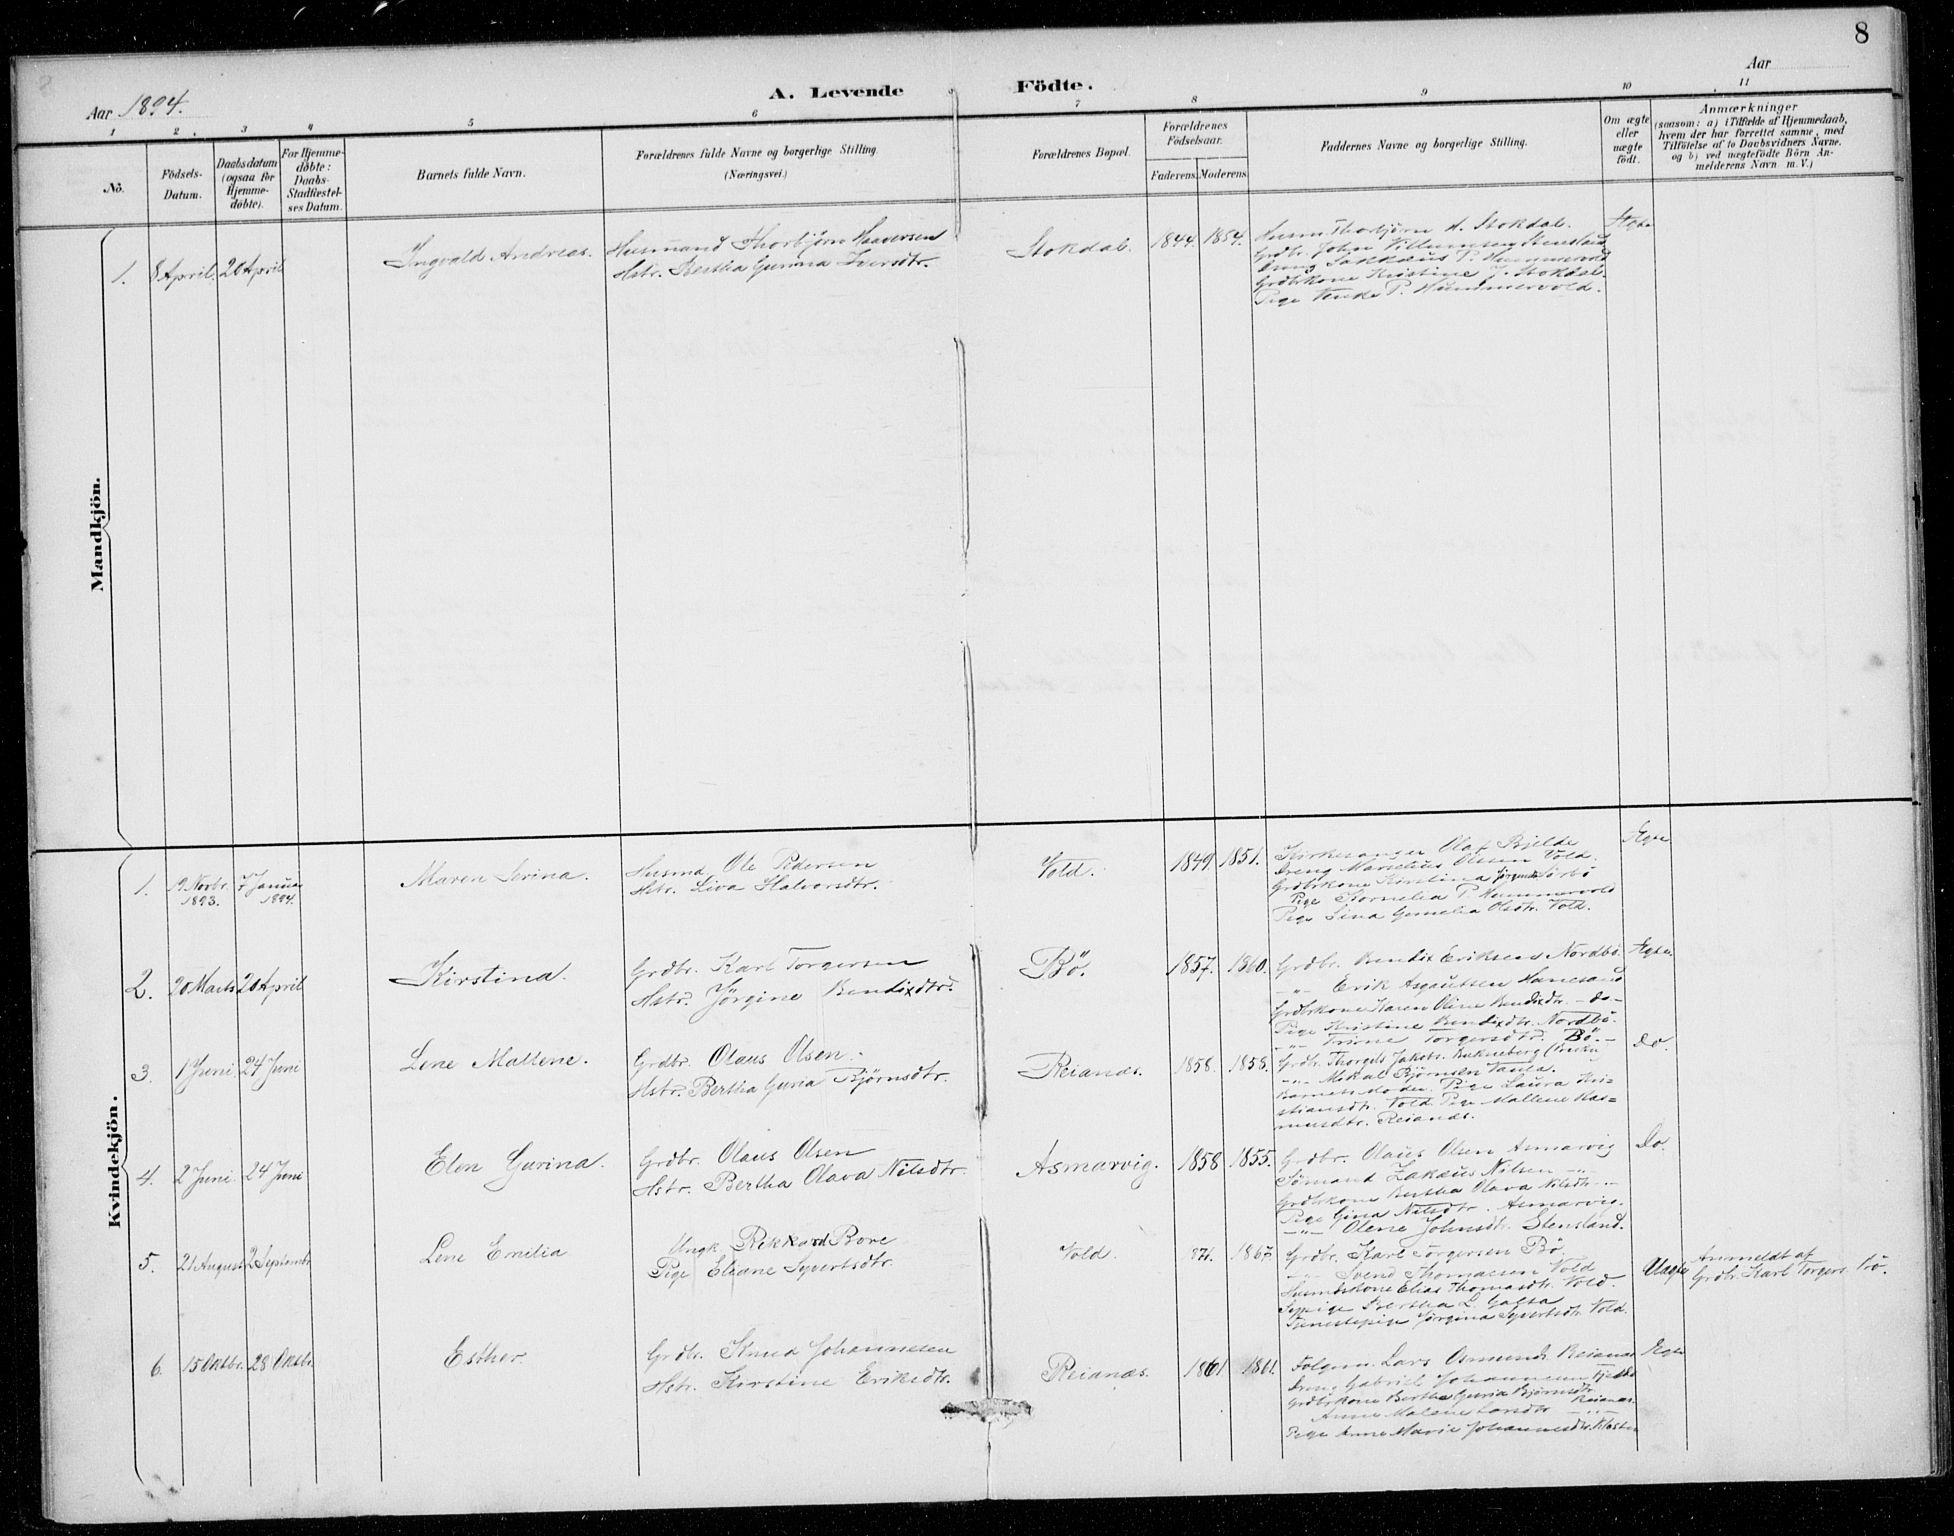 8
Aar 1894.
A. Levende Födte.
Aar
1 2. 3 4 5 6 7 8 9 10 11
No.
Födsels-Datum.
Daabsdatum (ogsaa for Hjemme-döbte).
For Hjemme-döbte: Daabs-Stadfæstel-ses Datum.
Barnets fulde Navn.
Forældrenes fulde Navne og borgerlige Stilling.
(Næringsvei.)
Forældrenes Bopæl.
Forældrenes Födselsaar.
Faderens. Moderens.
Faddernes Navne og borgerlige Stilling.
Om ægte eller uægte födt.
Anmærkninger
(saasom: a) i Tilfælde af Hjemmedaab,
hvem der har forrettet samme, med
Tilföielse af to Daabsvidners Navne.
og b) ved uægtefödte Börn An-
melderens Navn m. V.)
Mandkjön.
1. 8 April. 20 April Ingvald Andreas.
Husmand Thorbjørn Haaversen
Hstr. Bertha Gurina Iversdtr.
Stokdal. 1844. 1854.
Husm. Thorbjørn H. Stokdal.
Grdbr. John Villumsen Stensland
Dreng Sakkæus P. Hummervold
Grdbrkone Kristine J. Stokdal.
Pige P. Hummervold.
Ægte
Kvindekjön.
1. 19 Novbr. 1893. 7 Januar 1894. Maren Serina.
Husmd Ole Pedersen
Hstr. Siva Halvorsdtr.
Vold. 1849. 1851.
Kirkesanger Olaf Bjelde
Dreng Marselius Olsen Vold.
Grdbrkone Kirstina Jörgensdtr Sörbö
Pige Kornelia P. Hummervold
Pige Sina Gurnelia Olsdtr. Vold.
Ægte
2. 20 Marts 20 April Kirstina.
Grdbr. Karl Torgersen
Hstr. Jörgine Bendixdtr.
Bö. 1857. 1860.
Grdbr. Bendix Eriksen Nordbö.
-"- Erik Asgautsen Hanesand
Grdbrkone Karen Oline Bendixdtr. -do-
Pige Kristine Bendixdtr. Nordbö.
-"- Trine Torgersdtr. Bö. -
Ægte.
3. 1 Juni. 24 Juni Lene Mallene.
Grdbr. Olaus Olsen.
Hstr. Bertha Guria Bjørnsdtr.
Reianæs. 1858. 1858.
Grdbr. Thorgils Jakobs.
-"- Mikal Bjørnsen Vaula.
Barnets Moder. Pige Laura Kri-
stiansdtr. Vold. Pige Mallene Ras-
musdtr. Reianæs.
Do.
4. 2 Juni. 24 Juni Elen Gurina.
Grdbr. Olaus Olsen
Hstr. Bertha Olava Nilsdtr.
Asmarvig. 1858 1855.
Grdbr. Olaus Olsen Asmarvig
Sömand Zakæus Nilsen -"-
Grdbrkone Bertha Olava Nilsdtr. -"-
Pige Gina Nilsdtr. Asmarvig.
-"- Olene Johnsdtr. Stensland.
Do.
5. 21 August 2 Septembr Lene Emilia
Ungk. Rikkard Bore
Pige Eliane Syvertsdtr.
Vold. 871. 1867.
Grdbr. Karl Torgersen Bö.
-"- Svend Thomassen Vold
Husmdskone Elias Thomasdtr. Vold.
Sypige Bertha L. Galta
Tjenestepige Jörgina Syvertsdtr. Vold.
Uægte
Anmeldt af
Grdbr. Karl Torgers. Bö.
6. 15 Oktbr. 28 Oktbr. Esther.
Grdbr. Knud Johannesen
Hstr. Kirstine Eriksdtr.
Reianæs. 1861 1861.
Folgem. Lars Osmunds. Reianæs
Dreng Gabriel Johannesen
Grdbrkone Bertha Guria Bjørnsdtr.
Anne Malene Larsdtr Reianæs
Pige Anne Marie Johannesdtr. Kloster
Ægte